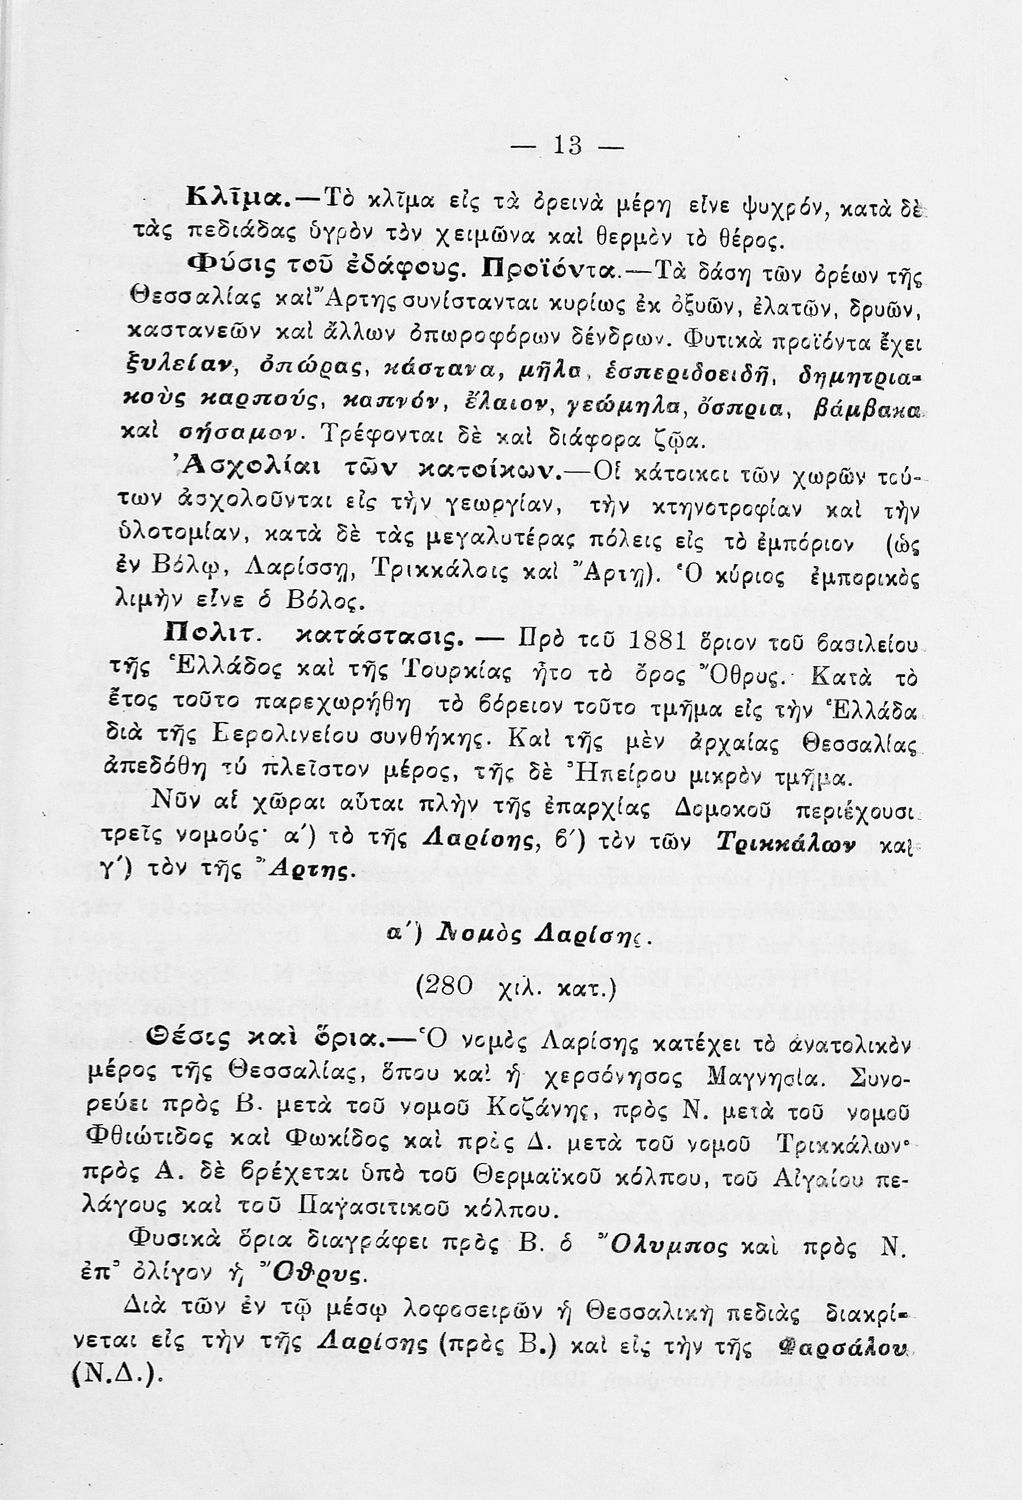 — 13 —
Κλῖμα.—Τὸ κλῖμα εἰς τὰ ὀρεινὰ μέρη εἶνε ψυχρόν, κατὰ δὲ
τὰς πεδιάδας ὑγρὸν τὸν χειμῶνα καὶ θερμὸν τὸ θέρος.
Φύσις τοῦ ἐδάφους. Προϊόντα.—Τὰ δάση τῶν ὀρέων τῆς
Θεσσαλίας καὶ Ἄρτης συνίστανται κυρίως ἐκ ὀξυῶν, ἐλατῶν, δρυῶν,
καστανεῶν καὶ ἄλλων ὀπωροφόρων δένδρων. Φυτικὰ προϊόντα ἔχει
ξυλείαν, ὀπώρας, κάστανα, μῆλα, ἑσπεριδοειδῆ, δημητρια-
κοὺς καρπούς, καπνόν, ἔλαιον, γεώμηλα, ὄσπρια, βάμβακα
καὶ σήσαμον. Τρέφονται δὲ καὶ διάφορα ζῷα.
Ἀσχολίαι τῶν κατοίκων.—Οἱ κάτοικοι τῶν χωρῶν τού-
των ἀσχολοῦνται εἰς τὴν γεωργίαν, τὴν κτηνοτροφίαν καὶ τὴν
ὑλοτομίαν, κατὰ δὲ τὰς μεγαλυτέρας πόλεις εἰς τὸ ἐμπόριον (ὡς
ἐν Βόλῳ, Λαρίσσῃ, Τρικκάλοις καὶ Ἄρτῃ). Ὁ κύριος ἐμπορικὸς
λιμὴν εἶνε ὁ Βόλος.
Πολιτ. κατάστασις. — Πρὸ τοῦ 1881 ὅριον τοῦ βασιλείου
τῆς Ἑλλάδος καὶ τῆς Τουρκίας ἦτο τὸ ὄρος Ὄθρυς. Κατὰ τὸ
ἔτος τοῦτο παρεχωρήθη τὸ βόρειον τοῦτο τμῆμα εἰς τὴν Ἑλλάδα
διὰ τῆς Βερολινείου συνθήκης. Καὶ τῆς μὲν ἀρχαίας Θεσσαλίας
ἀπεδόθη τὸ πλεῖστον μέρος, τῆς δὲ Ἠπείρου μικρὸν τμῆμα.
Νῦν αἱ χῶραι αὗται πλὴν τῆς ἐπαρχίας Δομοκοῦ περιέχουσι
τρεῖς νομούς· α΄) τὸ τῆς Λαρίσης, β΄) τὸν τῶν Τρικκάλων καὶ
γ΄) τὸν τῆς Ἄρτης.
α΄) Νομὸς Λαρίσης.
(280 χιλ. κατ.)
Θέσις καὶ ὅρια.—Ὁ νομὸς Λαρίσης κατέχει τὸ ἀνατολικὸν
μέρος τῆς Θεσσαλίας, ὅπου καὶ ἡ χερσόνησος Μαγνησία. Συνο-
ρεύει πρὸς Β. μετὰ τοῦ νομοῦ Κοζάνης, πρὸς Ν. μετὰ τοῦ νομοῦ
Φθιώτιδος καὶ Φωκίδος καὶ πρὸς Δ. μετὰ τοῦ νομοῦ Τρικκάλων·
πρὸς Α. δὲ βρέχεται ὑπὸ τοῦ Θερμαϊκοῦ κόλπου, τοῦ Αἰγαίου πε-
λάγους καὶ τοῦ Παγασιτικοῦ κόλπου.
Φυσικὰ ὅρια διαγράφει πρὸς Β. ὁ Ὄλυμπος καὶ πρὸς Ν.
ἐπ᾿ ὀλίγον ἡ Ὄθρυς.
Διὰ τῶν ἐν τῷ μέσῳ λοφοσειρῶν ἡ Θεσσαλικὴ πεδιὰς διακρί-
νεται εἰς τὴν τῆς Λαρίσης (πρὸς Β.) καὶ εἰς τὴν τῆς Φαρσάλου
(Ν.Δ.).